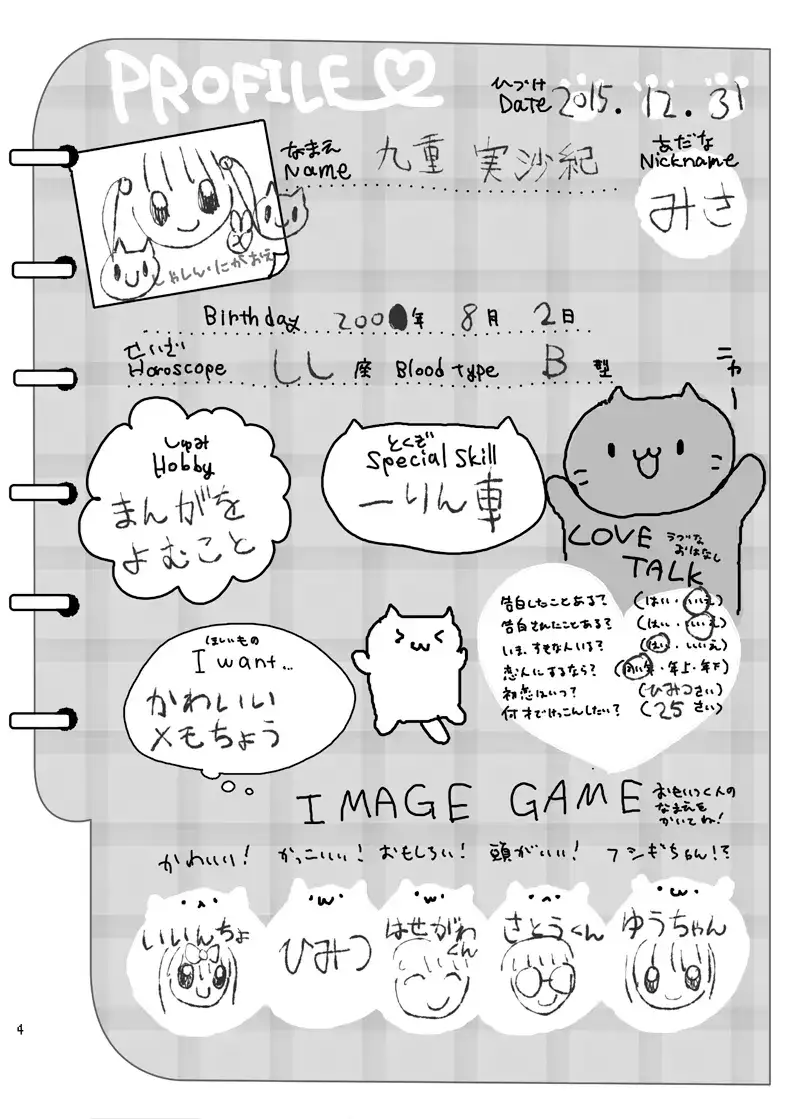 PROFILE
ひづけ
Date 2015.12.31
なまえ
Name 九重 実沙紀
あだな
Nickname
みさ
しゃしん・にがおえ
Birthday 200 年 8月 2日
せいざ
Horoscope しし座 Blood type B型
ニャー
しゅみ
Hobby
まんがを
よむこと
とくぎ
Special Skill
一りん車
LOVE
TALK
ラブな
おはなし
告白したことある? (はい・いいえ)
告白されたことある? (はい・いいえ)
いま、すきな人いる? (はい・いいえ)
恋人にするなら? (同い年・年上・年下)
初恋はいつ? (ひみつさい)
何才でけっこんしたい? (25さい)
ほしいもの
I want...
かわいい
メモちょう
IMAGE GAME
おもいつく人の
なまえを
かいてね!
かわいい! かっこいい! おもしろい! 頭がいい! フシギちゃん!?
いいんちょ
ひみつ
はせがわ
くん
さとうくん
ゆうちゃん
4